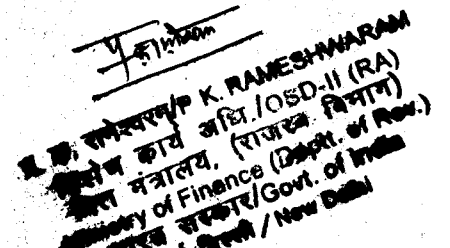 प. क. रामेश्वरम/P K. RAMESHWARAM
विशेष कार्य अधि./OSD-II (RA)
वित्त मंत्रालय, (राजस्व विभाग)
Ministry of Finance (Deptt. of Rev.)
भारत सरकार/Govt. of India
दिल्ली / New Delhi